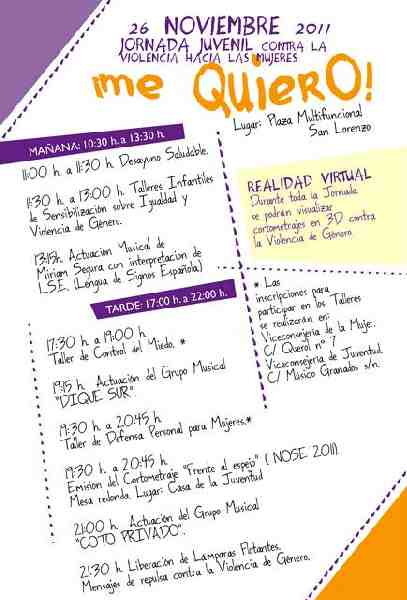 26 NOVIEMBRE 2011
JORNADA JUVENIL CONTRA LA
VIOLENCIA HACIA LAS MUJERES
¡ME QUIERO!
Lugar: Plaza Multifuncional
San Lorenzo
MAÑANA: 10:30 h. a 13:30 h.
11:00 h. a 11:30 h. Desayuno Saludable.
11:30 h. a 13:00 h. Talleres Infantiles
de Sensibilización sobre Igualdad y
Violencia de Género.
13:15h. Actuación Musical de
Miriam Segura con interpretación de
L.S.E. (Lengua de Signos Española)
REALIDAD VIRTUAL
Durante toda la Jornada
se podrán visualizar
cortometrajes en 3D contra
la Violencia de Género.
TARDE: 17:00 h. a 22:00 h.
17:30 h. a 19:00 h.
Taller de Control del Miedo. *
19:15 h. Actuación del Grupo Musical
"DIQUE SUR"
19:30 h. a 20:45 h
Taller de Defensa Personal para Mujeres.*
19:30 h. a 20:45 h.
Emisión del Cortometraje "Frente al espejo" ( NOSE 2011)
Mesa redonda. Lugar: Casa de la Juventud
21:00 h. Actuación del Grupo Musical
"COTO PRIVADO".
21:30 h. Liberación de Lámparas Flotantes.
Mensajes de repulsa contra la Violencia de Género.
* Las
inscripciones para
participar en los Talleres
se realizarán en:
Viceconsejería de la Mujer.
C/ Querol nº 7
Viceconsejería de Juventud
C/ Músico Granados s/n.